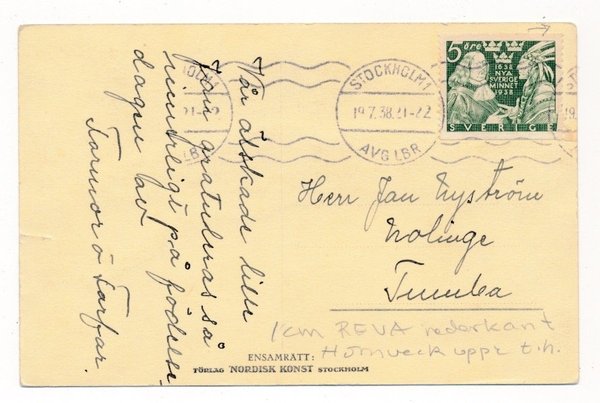 Vår älskade lille
Jan gratuleras så
innerligt på födelse-
dagen av
Farmor o Farfar.
STOCKHOLM 1
19.7.38.21-22
AVG LBR
5 öre
1638
NYA
SVERIGE
MINNET
1938
SVERIGE
Herr Jan Nyström
Nolinge
Tumba
1 cm REVA nederkant
Hörnveck uppe t.h.
ENSAMRÄTT:
FÖRLAG NORDISK KONST STOCKHOLM